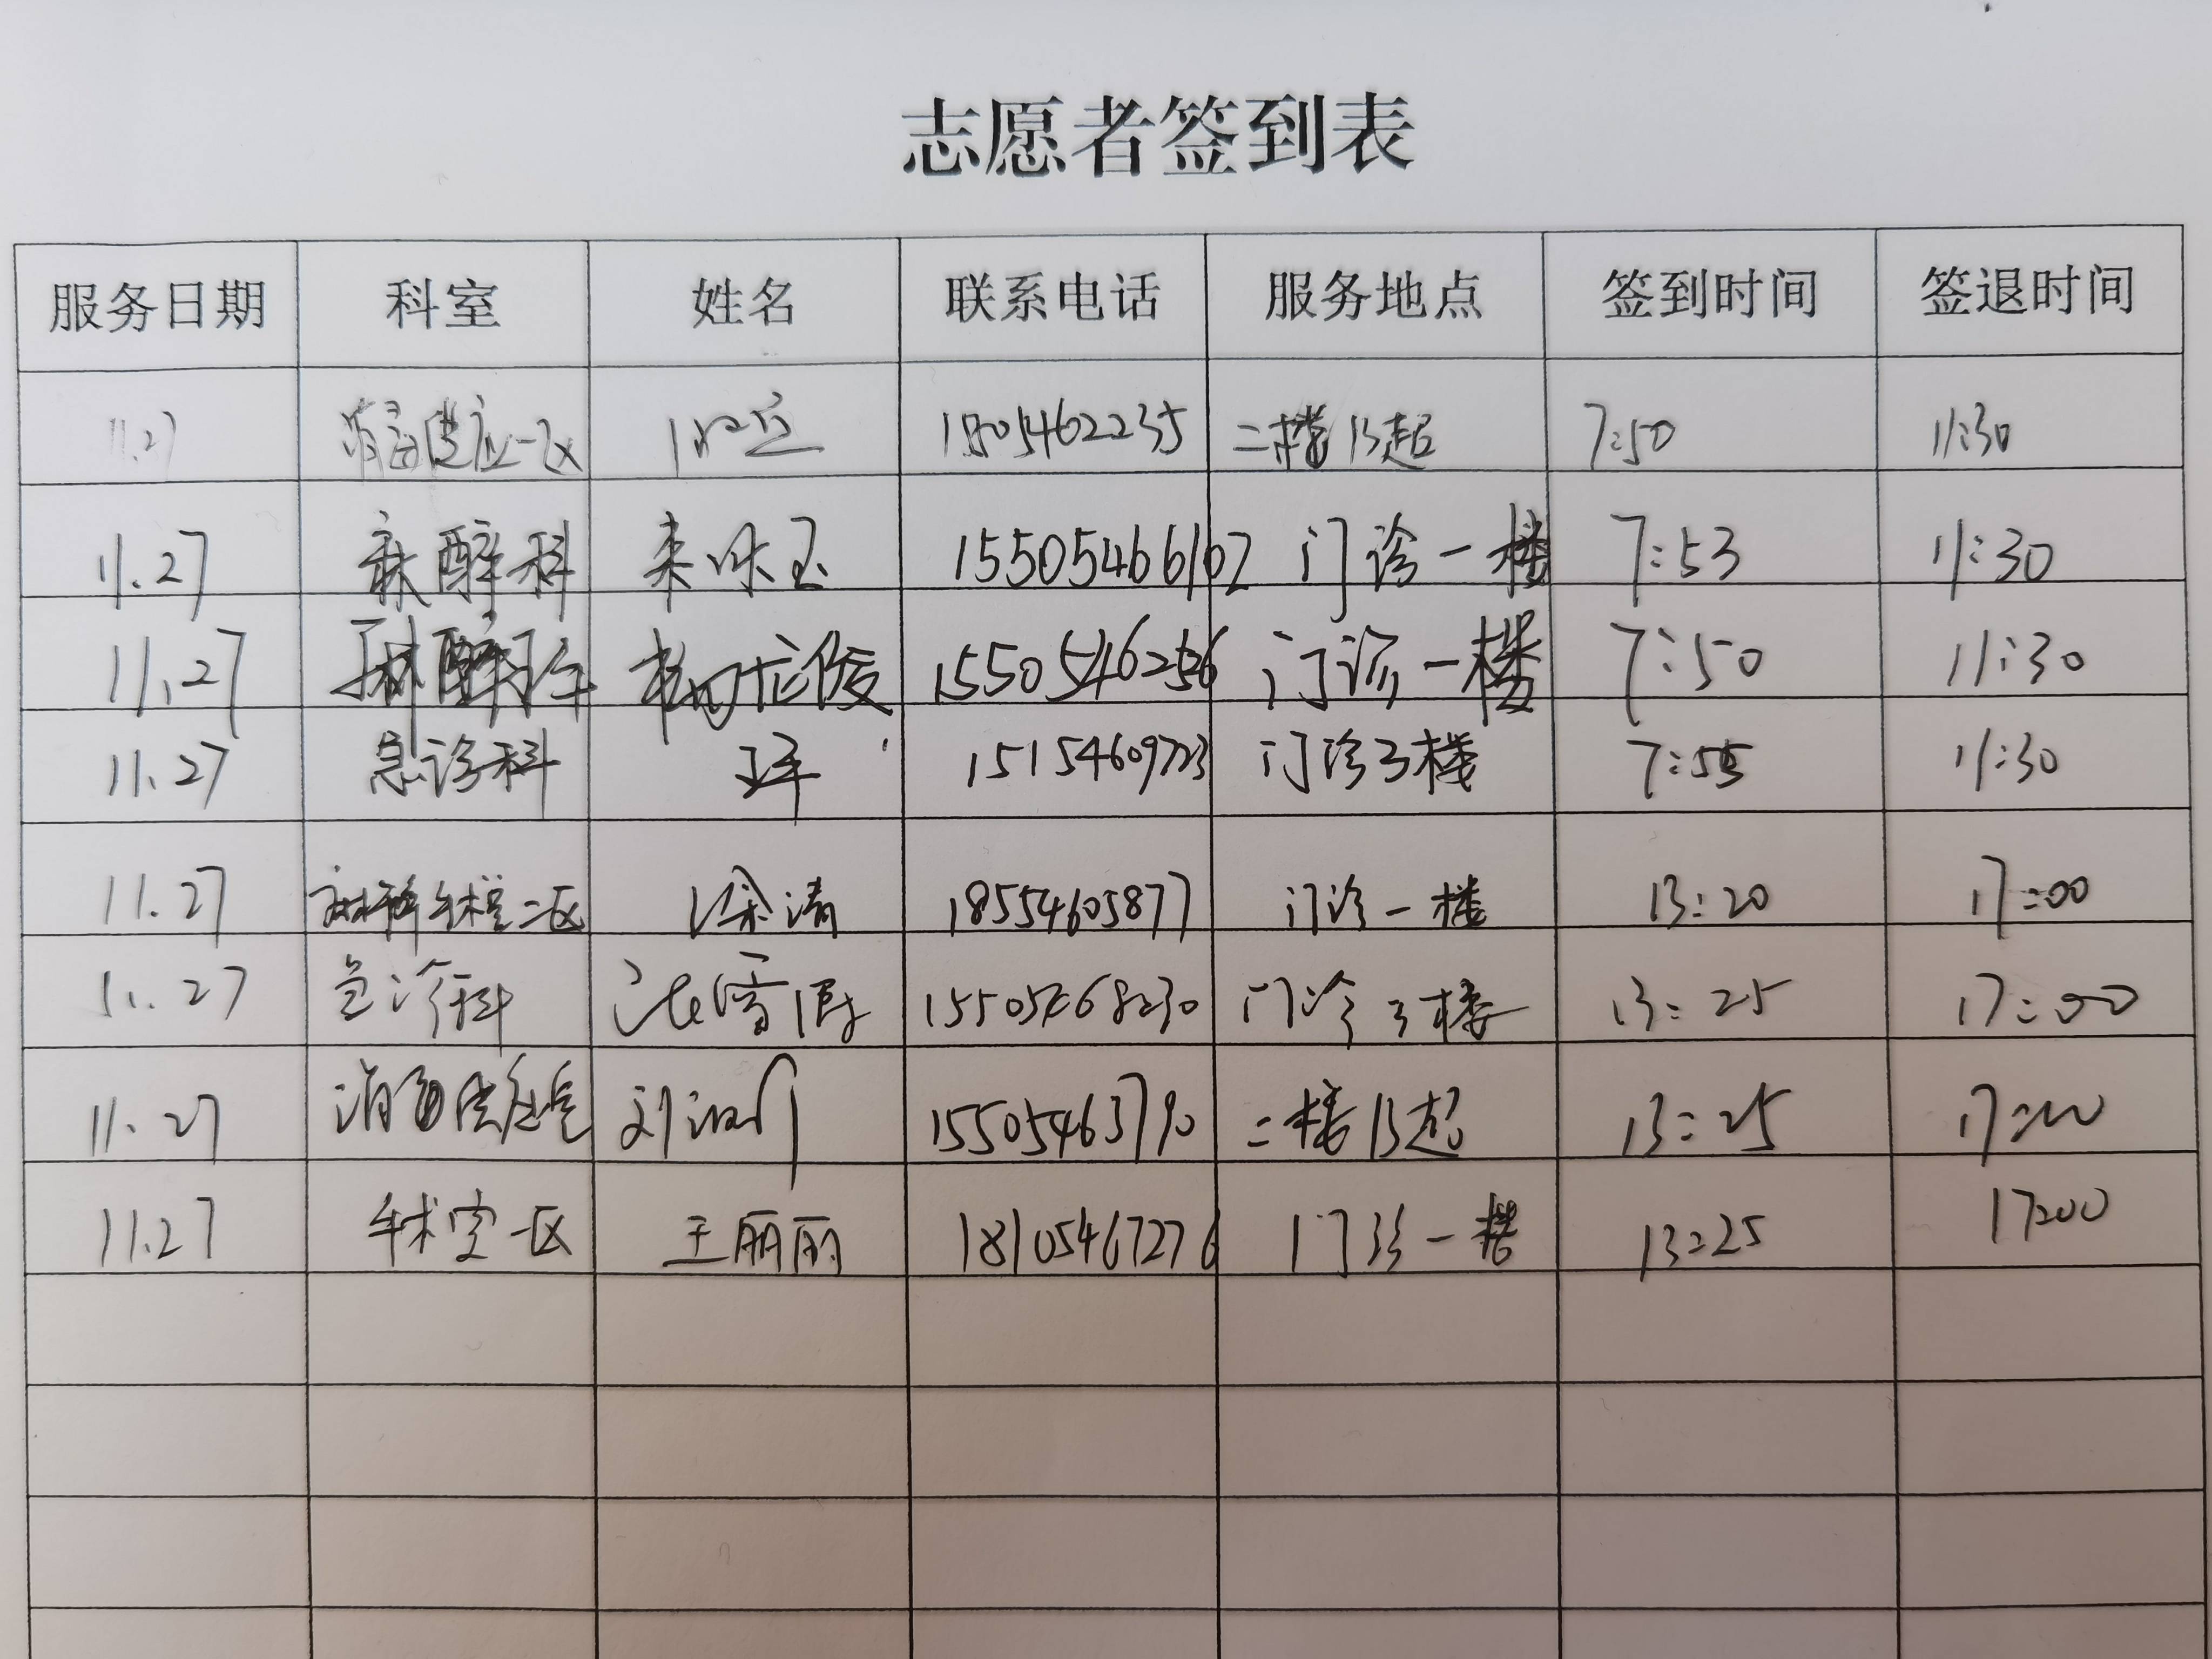 志愿者签到表
服务日期 科室 姓名 联系电话 服务地点 签到时间 签退时间
11.27 消毒供应一区 二楼B超 7:50 11:30
11.27 麻醉科 15505466102 门诊一楼 7:53 11:30
11.27 麻醉科 门诊一楼 7:50 11:30
11.27 急诊科 门诊3楼 7:55 11:30
11.27 徐清 18554605877 门诊一楼 13:20 17:00
11.27 急诊科 15505468230 门诊3楼 13:25 17:00
11.27 15505463790 二楼B超 13:25 17:00
11.27 手术室一区 王丽丽 18105467276 门诊一楼 13:25 17:00